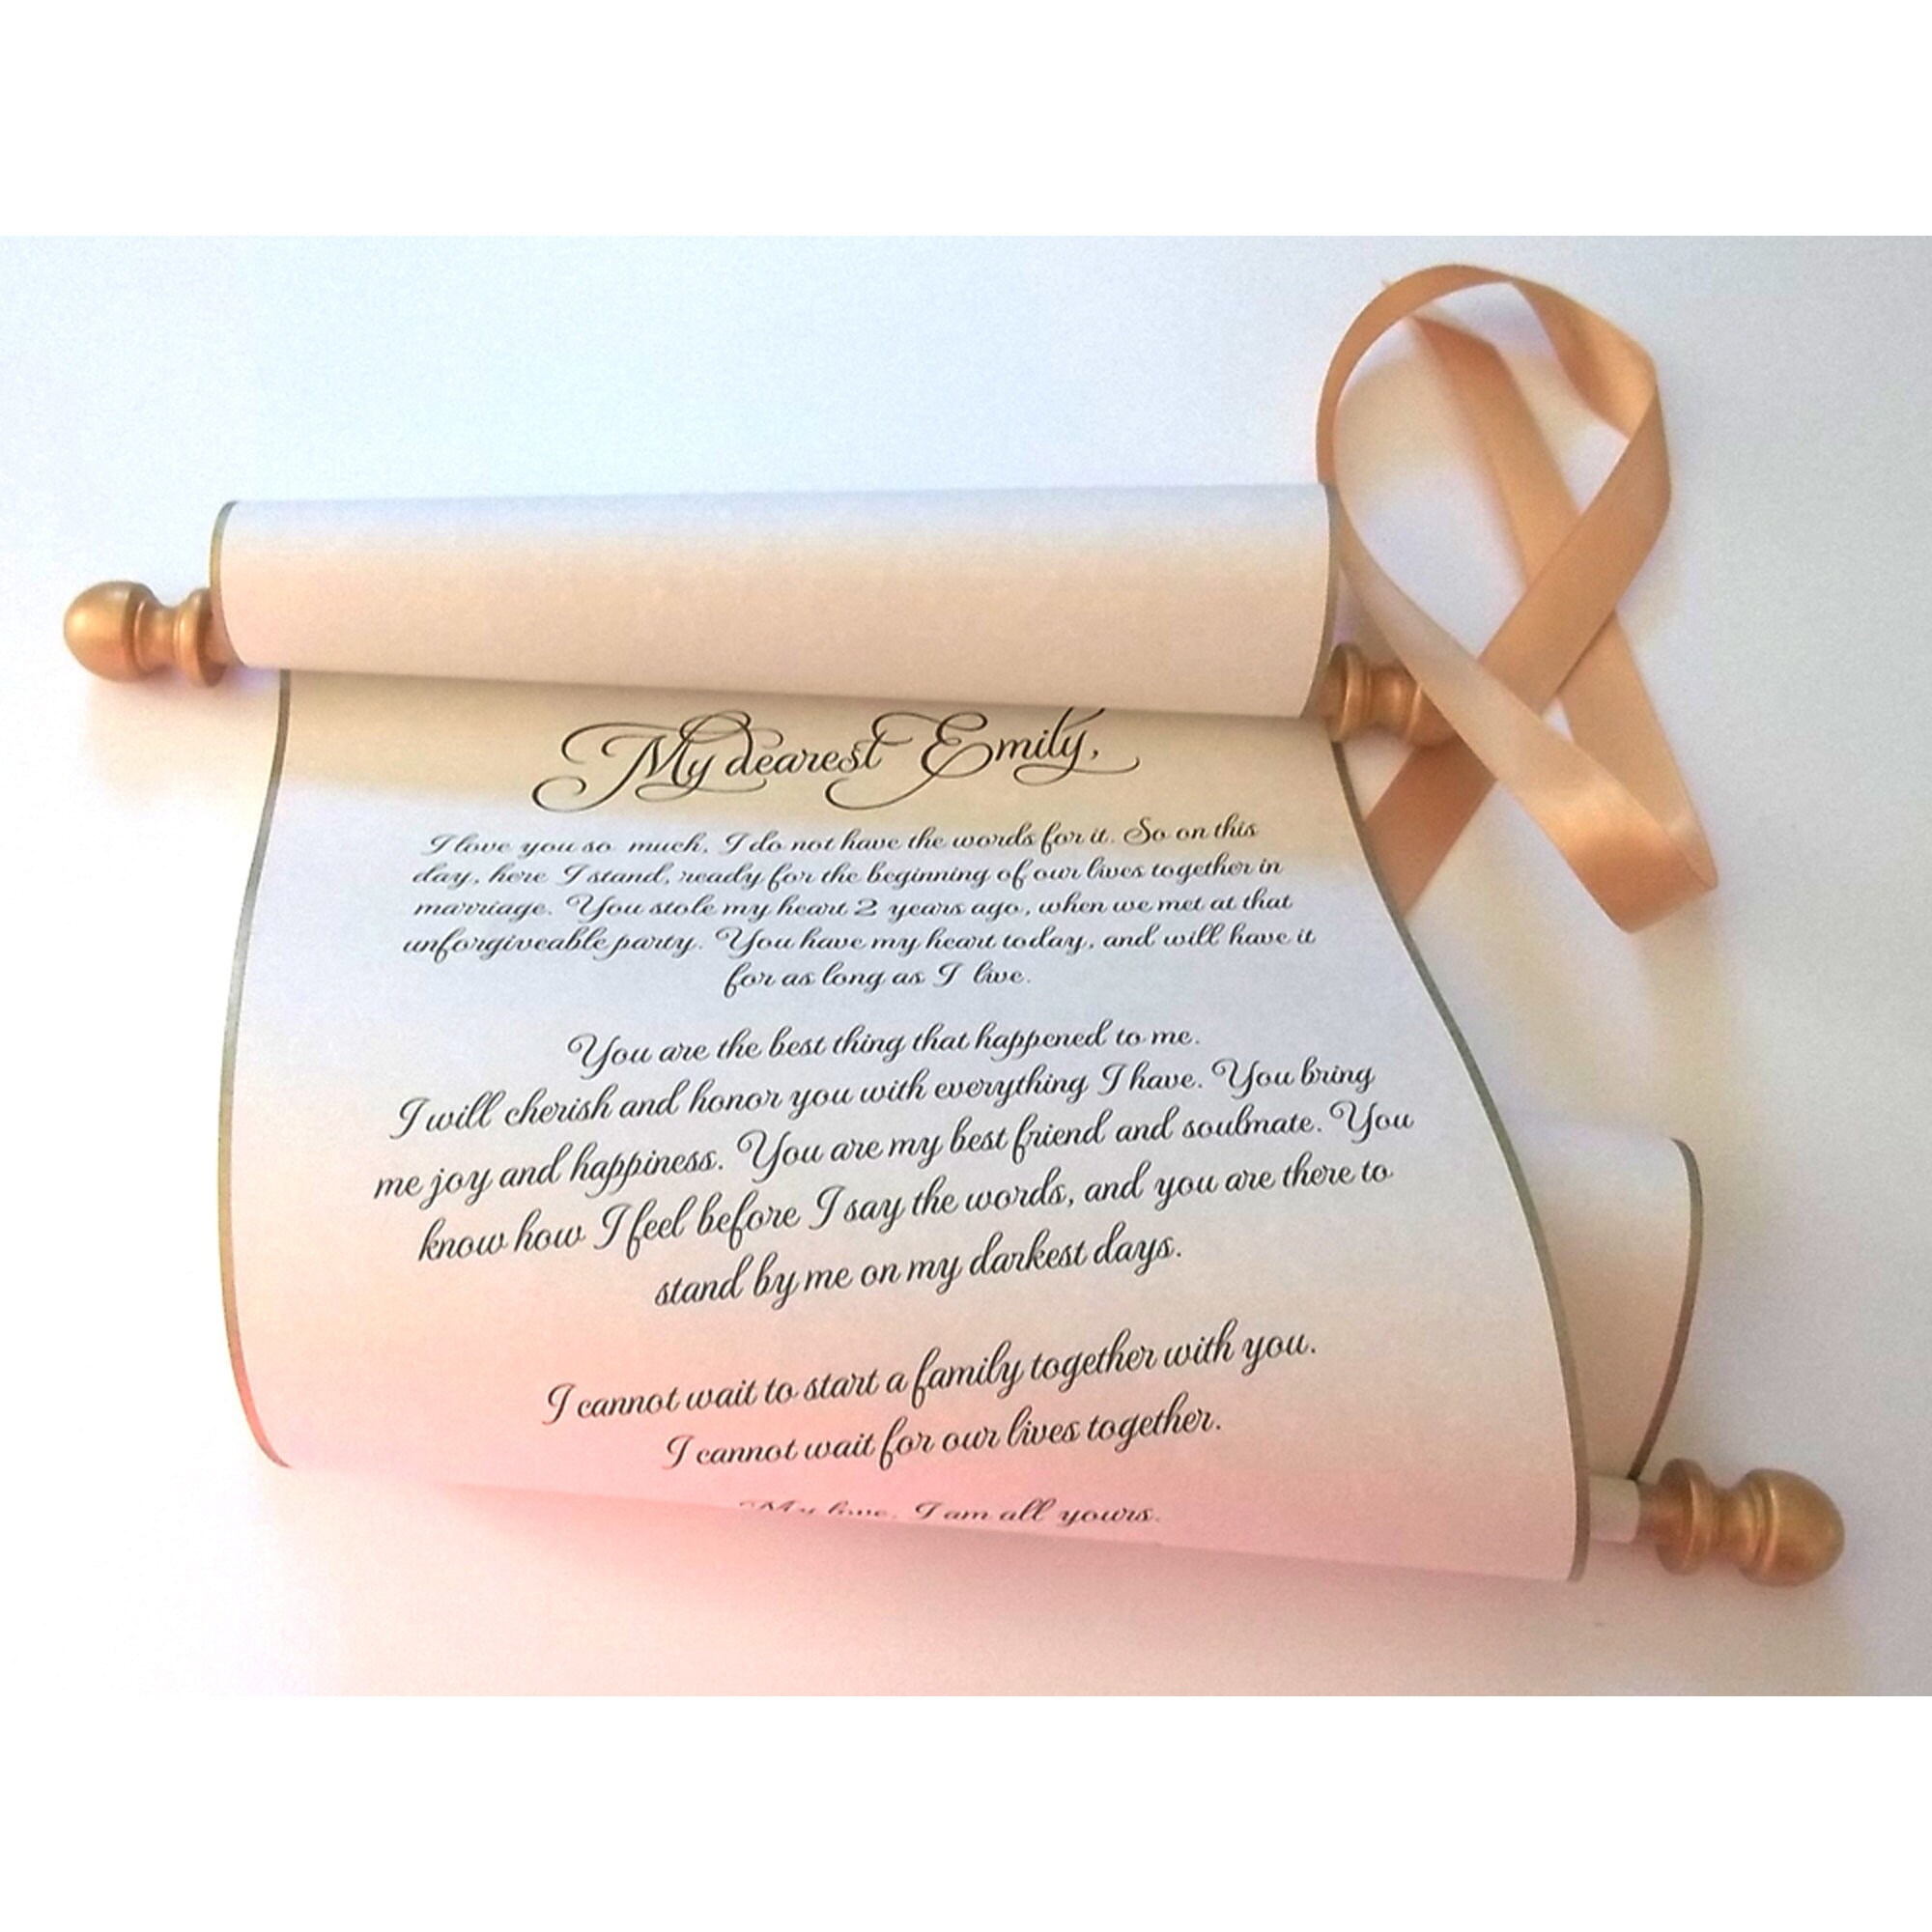 My dearest Emily,
I love you so much, I do not have the words for it. So on this
day, here I stand, ready for the beginning of our lives together in
marriage. You stole my heart 2 years ago, when we met at that
unforgiveable party. You have my heart today, and will have it
for as long as I live.
You are the best thing that happened to me.
I will cherish and honor you with everything I have. You bring
me joy and happiness. You are my best friend and soulmate. You
know how I feel before I say the words, and you are there to
stand by me on my darkest days.
I cannot wait to start a family together with you.
I cannot wait for our lives together.
My love, I am all yours.